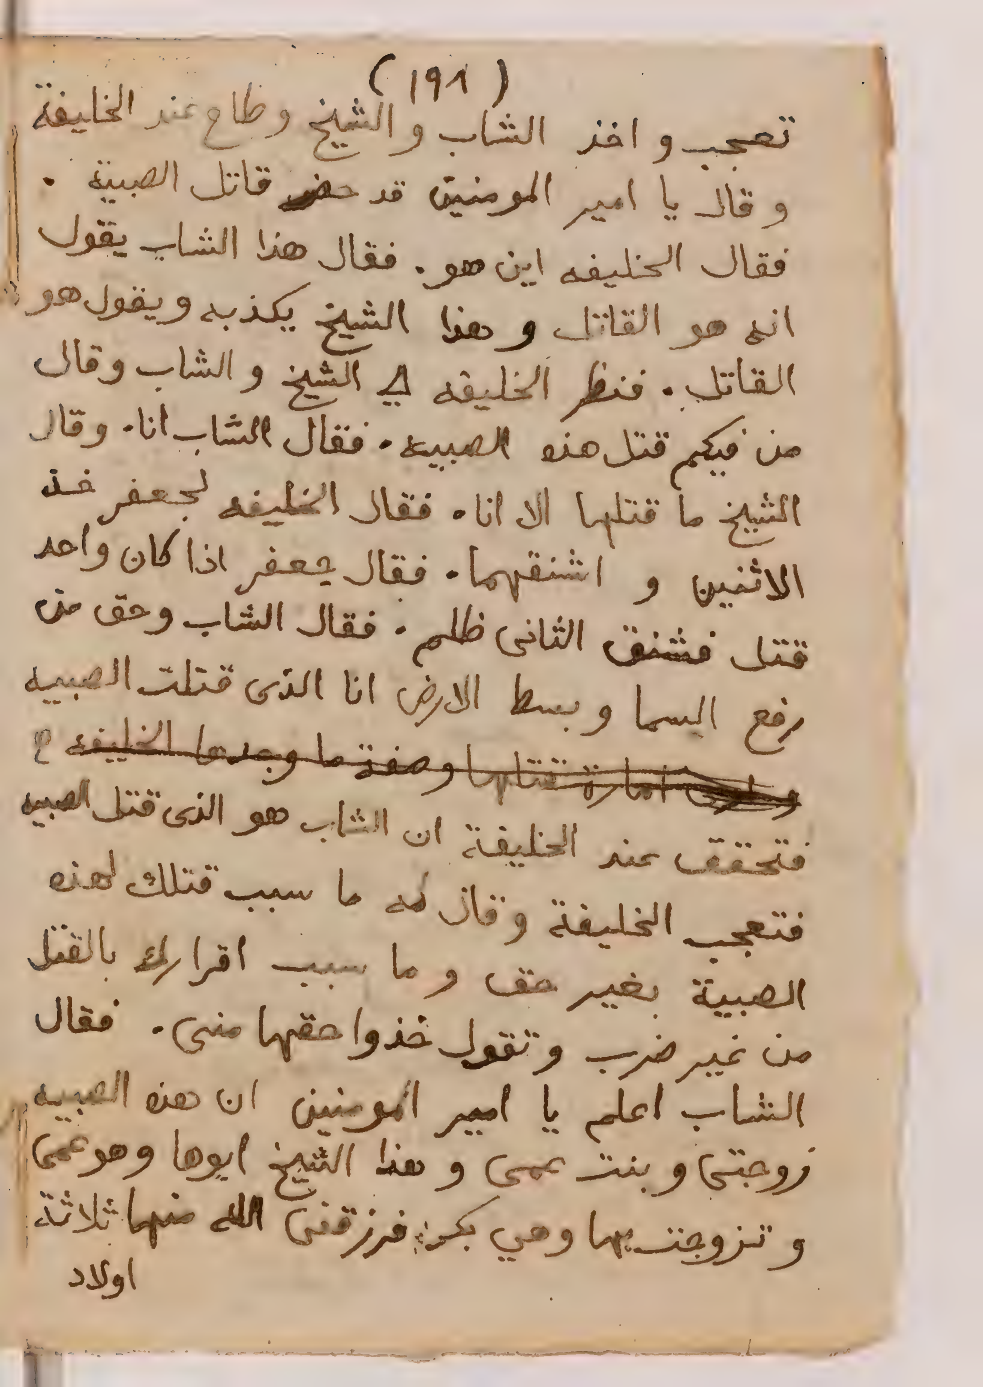 (١٩٨)
تعجب و اخذ الشاب و الشيخ و طلع عند الخليفة
و قال يا امير المومنين قد حضر قاتل الصبية .
فقال الخليفه اين هو . فقال هذا الشاب يقول
انه هو القاتل و هذا الشيخ يكذبه و يقول هو
القاتل . فنظر الخليفه الي الشيخ و الشاب وقال
من فيكم قتل هذه الصبيه . فقال الشاب انا . وقال
الشيخ ما قتلها الا انا . فقال الخليفه لجعفر خذ
الاثنين و اشنقهما . فقال جعفر اذا كان واحد
قتل فشنق الثانى ظلم . فقال الشاب وحق من
رفع السما و بسط الارض انا الذى قتلت الصبيه
امارة قتلها وصفة ما وجدها الخليفه
فتحقق عند الخليفة ان الشاب هو الذى قتل الصبيه
فتعجب الخليفة وقال له ما سبب قتلك لهذه
الصبية بغير حق و ما سبب اقرارك بالقتل
من غير ضرب و تقول خذوا حقها منى . فقال
الشاب اعلم يا امير المومنين ان هذه الصبيه
زوجتى و بنت عمى و هذا الشيخ ابوها وهو عمى
و تزوجت بها وهي بكر فرزقنى الله منها ثلاثة
اولاد